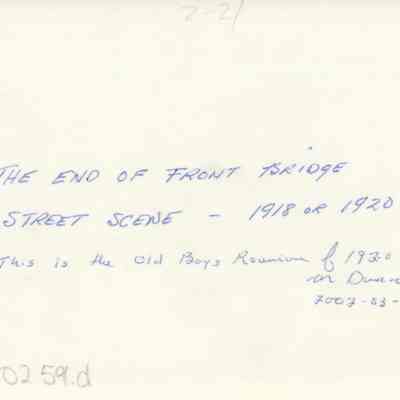 2-21
THE END OF FRONT BRIDGE
STREET SCENE - 1918 OR 1920
This is the Old Boys Reunion of 1920
in
2002-03-
0259.d